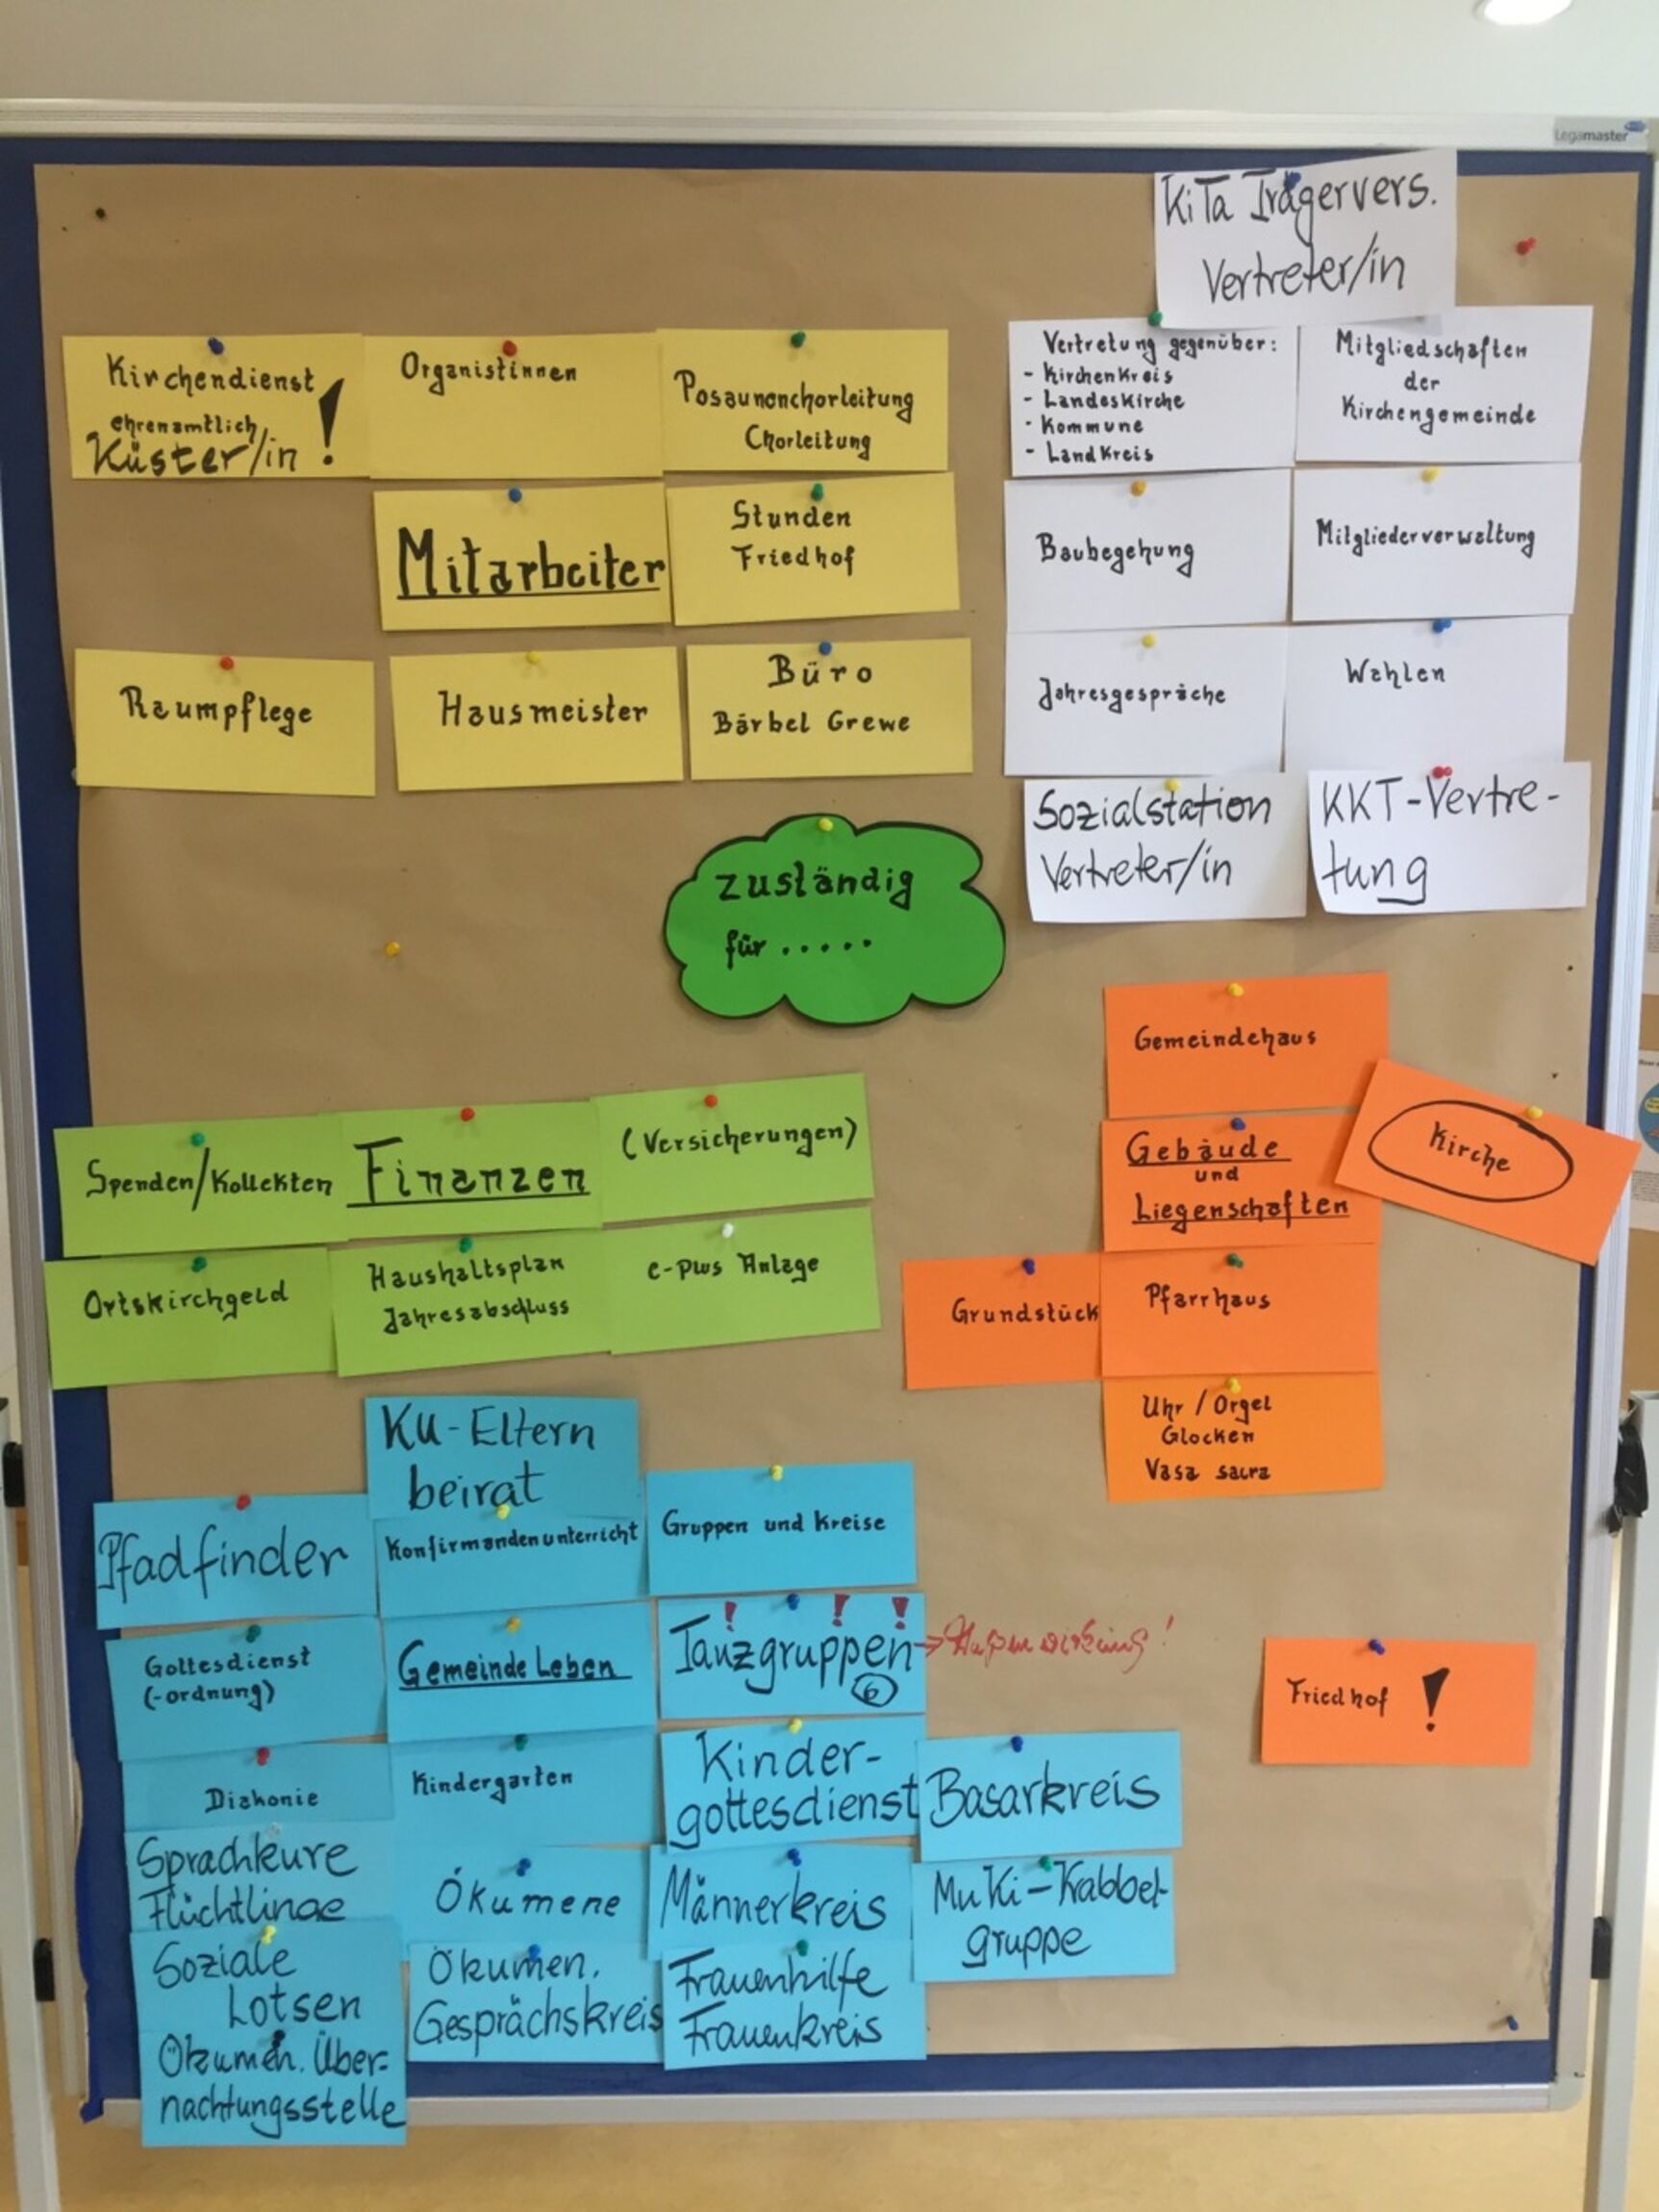 Legamaster
KiTa Trägervers.
Vertreter/in
Kirchendienst
ehrenamtlich
Küster/in !
Organistinnen
Posaunenchorleitung
Chorleitung
Mitarbeiter
Stunden
Friedhof
Raumpflege
Hausmeister
Büro
Bärbel Grewe
Vertretung gegenüber:
- Kirchenkreis
- Landeskirche
- Kommune
- Landkreis
Mitgliedschaften
der
Kirchengemeinde
Baubegehung
Mitgliederverwaltung
Jahresgespräche
Wahlen
Sozialstation
Vertreter/in
KKT-Vertre-
tung
zuständig
für .....
Gemeindehaus
Gebäude
und
Liegenschaften
Kirche
Grundstück
Pfarrhaus
Uhr / Orgel
Glocken
Vasa sacra
Friedhof !
Spenden/Kollekten
Finanzen
(Versicherungen)
Ortskirchgeld
Haushaltsplan
Jahresabschluss
e-plus Anlage
KU-Eltern
beirat
Pfadfinder
Konfirmandenunterricht
Gruppen und Kreise
Gottesdienst
(-ordnung)
Gemeinde Leben
! ! !
Tanzgruppen
6
→ Außenwirkung!
Diakonie
Kindergarten
Kinder-
gottesdienst
Basarkreis
Sprachkure
Flüchtlinge
Ökumene
Männerkreis
MuKi-Krabbel-
gruppe
Soziale
Lotsen
Ökumen.
Gesprächskreis
Frauenhilfe
Frauenkreis
Ökumen. Über-
nachtungsstelle